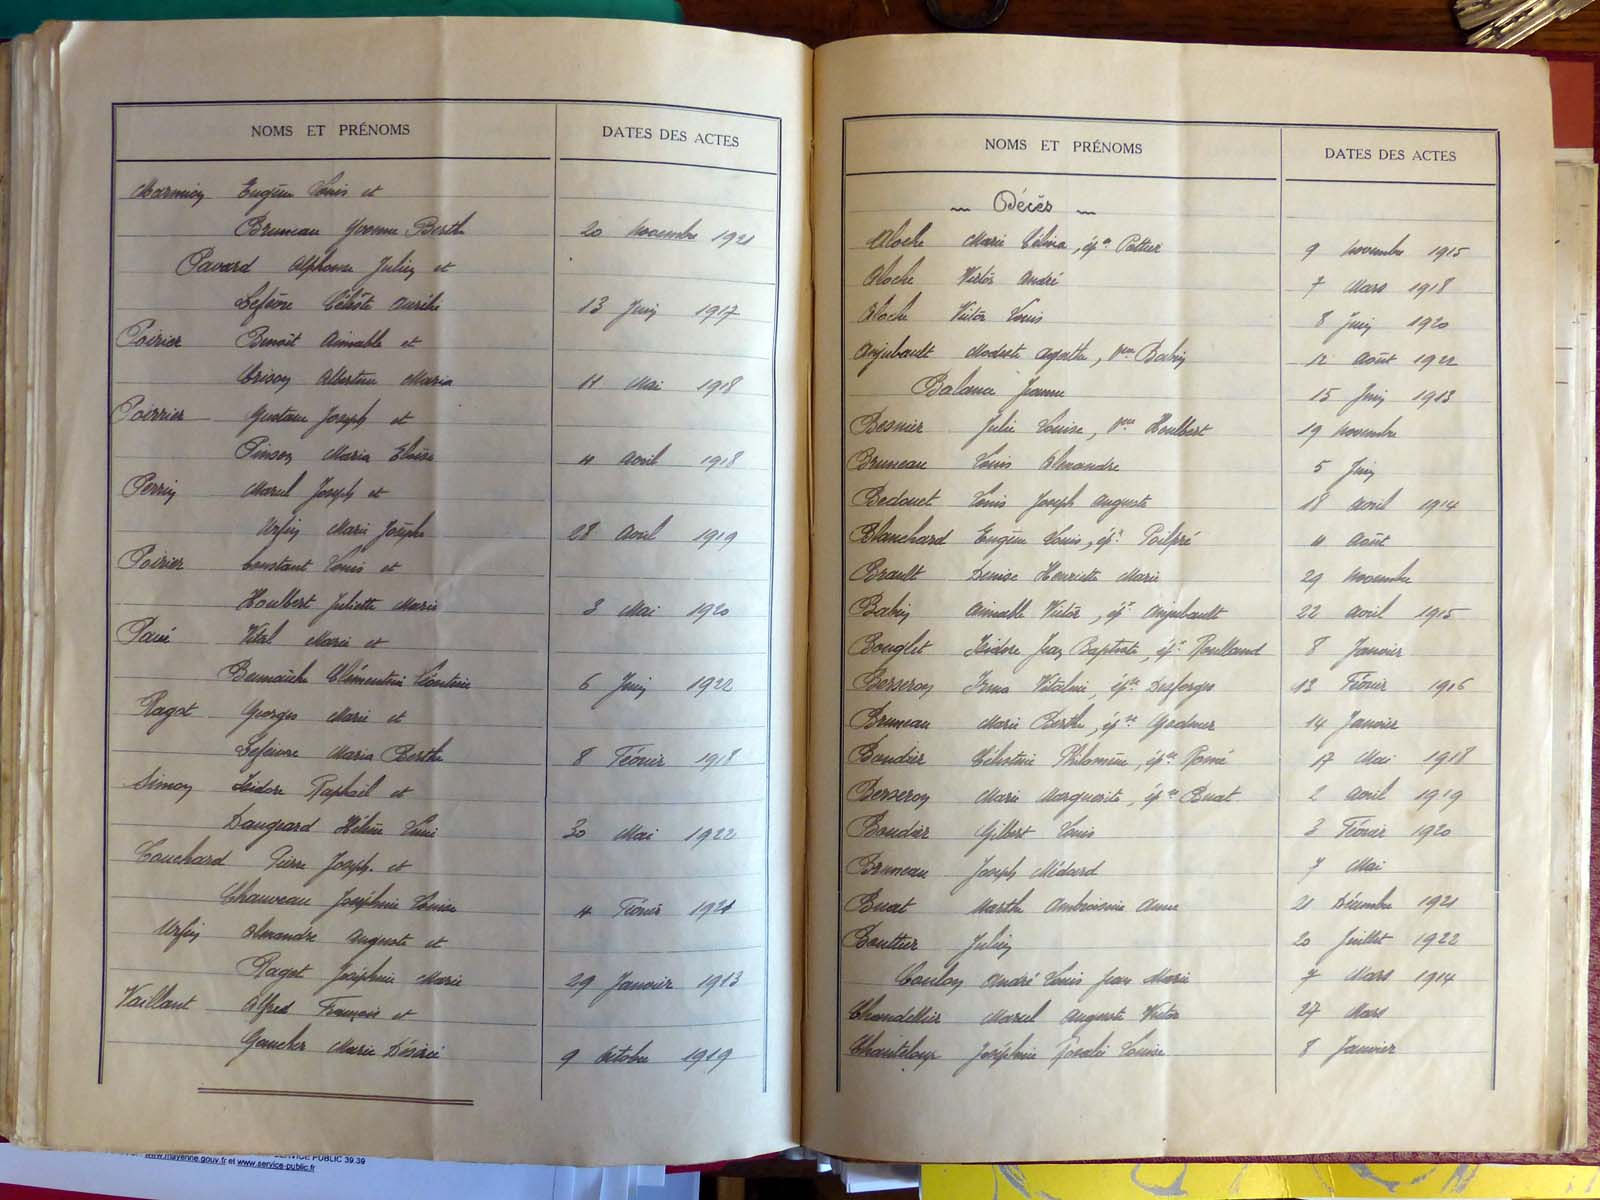 NOMS ET PRÉNOMS DATES DES ACTES
Marmion Eugène Louis et
Bruneau Yvonne Berthe 20 Novembre 1921
Pavard Alphonse Julien et
Lefèvre Céleste Aurélie 13 Juin 1917
Poirier Benoît Aimable et
Crison Albertine Maria 11 Mai 1918
Poirrier Gustave Joseph et
Pinson Maria Eloïse 4 Avril 1918
Perrin Marcel Joseph et
Urfin Marie Josèphe 28 Avril 1919
Poirier Constant Louis et
Houlbert Juliette Marie 3 Mai 1920
Pané Vital Marie et
Clémentine Léontine 6 Juin 1922
Ragot Georges Marie et
Lefeuvre Maria Berthe 8 Février 1918
Simon Isidore Raphaël et
Daugeard Hélène 30 Mai 1922
Couchard Pierre Joseph et
Chauveau Joséphine Louise 4 Février 1921
Urfin Alexandre Auguste et
Ragot Joséphine Marie 29 Janvier 1913
Vaillant Alfred François et
Gaucher Marie Désirée 9 Octobre 1919
NOMS ET PRÉNOMS DATES DES ACTES
~ Décès ~
Aloche Marie Célina, épse Pottier 9 Novembre 1915
Aloche Victor André 7 Mars 1918
Aloche Victor Louis 8 Juin 1920
Anjubault Modeste Agathe, vve Babin 12 Août 1922
Balance Jeanne 15 Juin 1913
Besnier Julie Louise, vve Houlbert 19 Novembre
Bruneau Louis Alexandre 5 Juin
Bedouet Louis Joseph Auguste 18 Avril 1914
Blanchard Eugène Louis, épx Poilpré 4 Août
Brault Denise Henriette Marie 29 Novembre
Babin Aimable Victor, épx Anjubault 22 Avril 1915
Bouglet Isidore Jean Baptiste, épx Roulland 8 Janvier
Berseron Irma Vitaline, épse Desforges 12 Février 1916
Bruneau Marie Berthe, épse 14 Janvier
Boudier Célestine Philomène, épse Romé 17 Mai 1918
Berseron Marie Marguerite, épse Buat 2 Avril 1919
Boudier Gilbert Louis 3 Février 1920
Bruneau Joseph Médard 7 Mai
Buat Marthe Ambroisine Anne 21 Décembre 1921
Bouttier Julien 20 Juillet 1922
Coulon André Louis Jean Marie 7 Mars 1914
Chandellier Marcel Auguste Victor 27 Mars
Chanteloup Joséphine Rosalie Louise 8 Janvier
SERVICE PUBLIC 39 39
www.mayenne.gouv.fr et www.service-public.fr